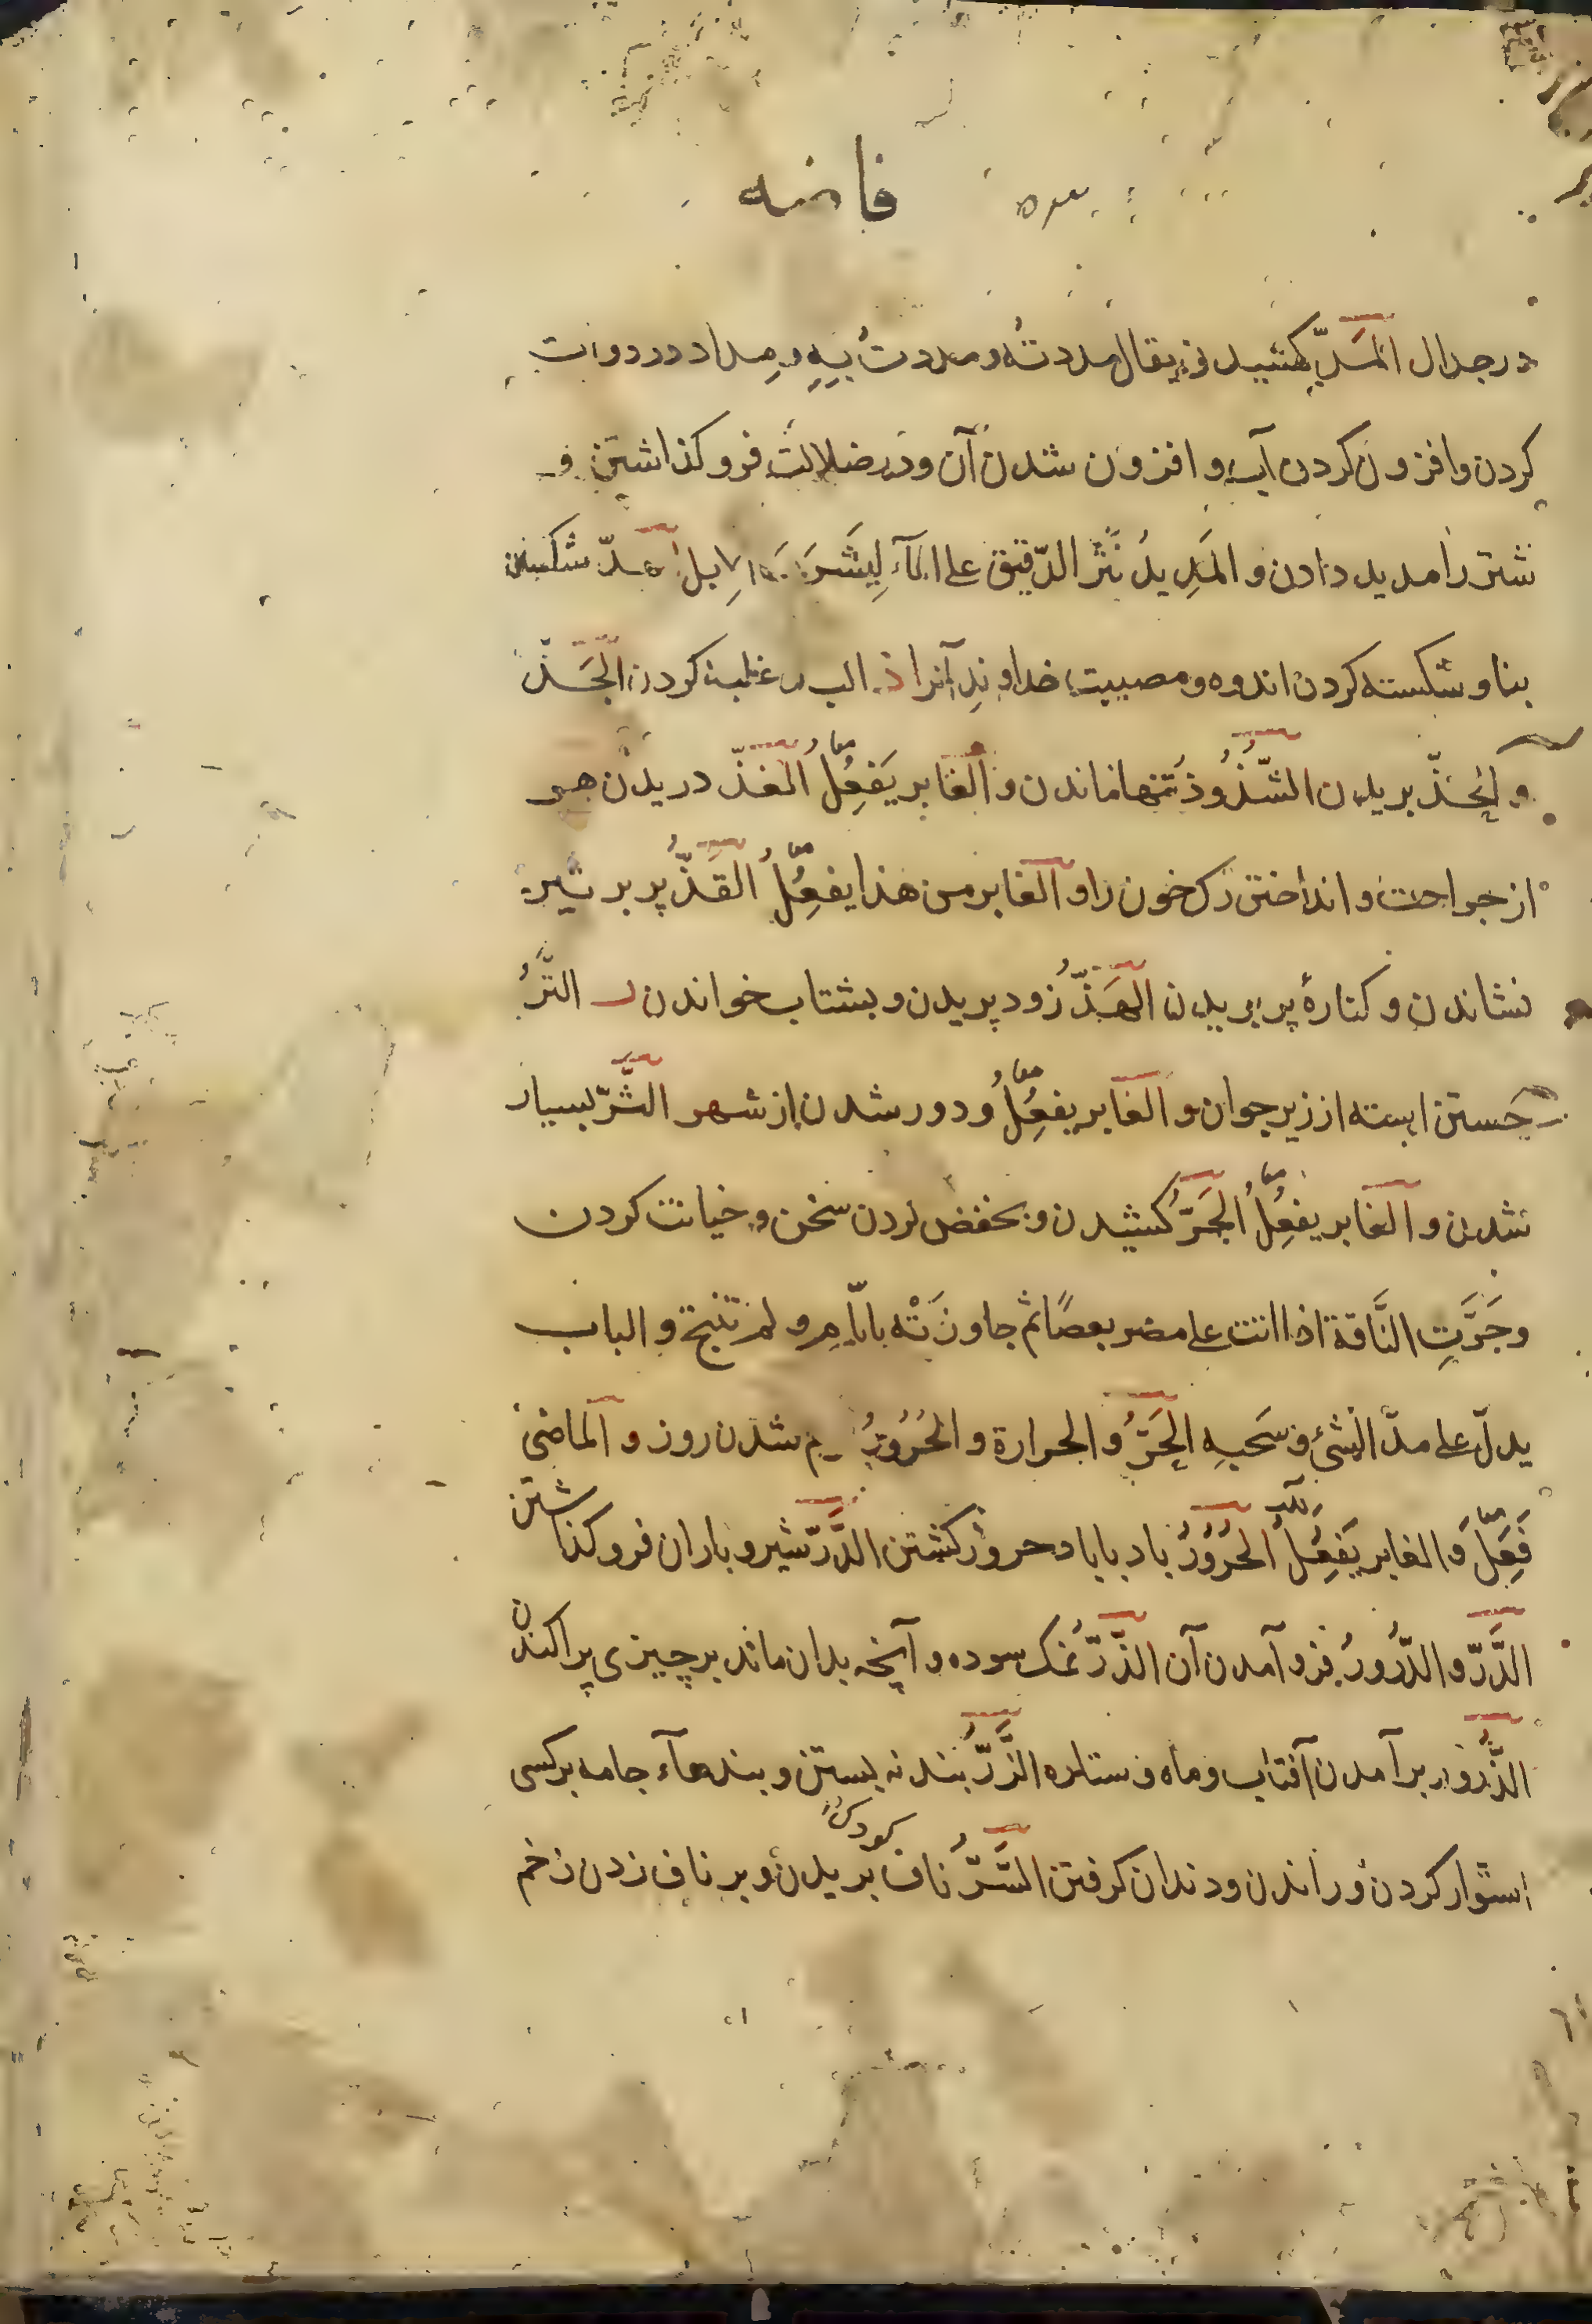 در جدال المَدّ کشیدن یقال مددتُه و مددتُ بِهِ و مداد در دوات
کردن و افزون کردن آب و افزون شدن آن و در ضلالت فرو کذاشتن و
شتر را مدید دادن و المَدِیدُ نَثْرُ الدّقیق علی المآءِ لِیَشْرَبَه الاِبل الهدّ شکستن
بنا و شکسته کردن اندوه و مصیبت خداوندِ آنرا ذ غلبه کردن الجَذّ
و الحَذّ بریدن الشُّذُوذُ تنها ماندن و الغابر یَفعِلُ معا الغذّ دریدن
از جراحت و انداختن رک خون را و الغابر من هذا یفعِلُ معا القَذّ پر بر تیر
نشاندن و کنارۀ پر بریدن الهَذّ زود بریدن و بشتاب خواندن ر التَّرُّ
جستن استه از زیر جوان و الغابر یفعِلُ معا و دور شدن از شهر الثَّرّ بسیار
شدن و الغابر یفعِلُ معا الجَرّ کشیدن و بخفض کردن سخن و خیانت کردن
و جَرَّتِ النَّاقة اذا اتت علی مضربها ثم جاوزَتْه بایّام و لم تنتج و الباب
یدلّ علی مدّ الشئ و سَحبِهِ الحَرُّ و الحرارة و الحُرُورُ کرم شدن روز و الماضی
فَعِلَ معا و الغابر یَفعِلُ الحُرُورُ باد باباد حرور کشتن الدَّرّ شیر و باران فرو کذاشتن
الدَّرّ و الدُّرُورُ فرو آمدن آن الذَّرّ نمک سوده و آنچه بدان ماند بر چیزی پراکندن
الذُّرُور برآمدن آفتاب و ماه و ستاره الزَّرّ بندنه بستن و بندهآء جامه بر کسی
استوار کردن و راندن و دندان کرفتن السَّرّ ناف کودک بریدن و بر ناف زدن زخم